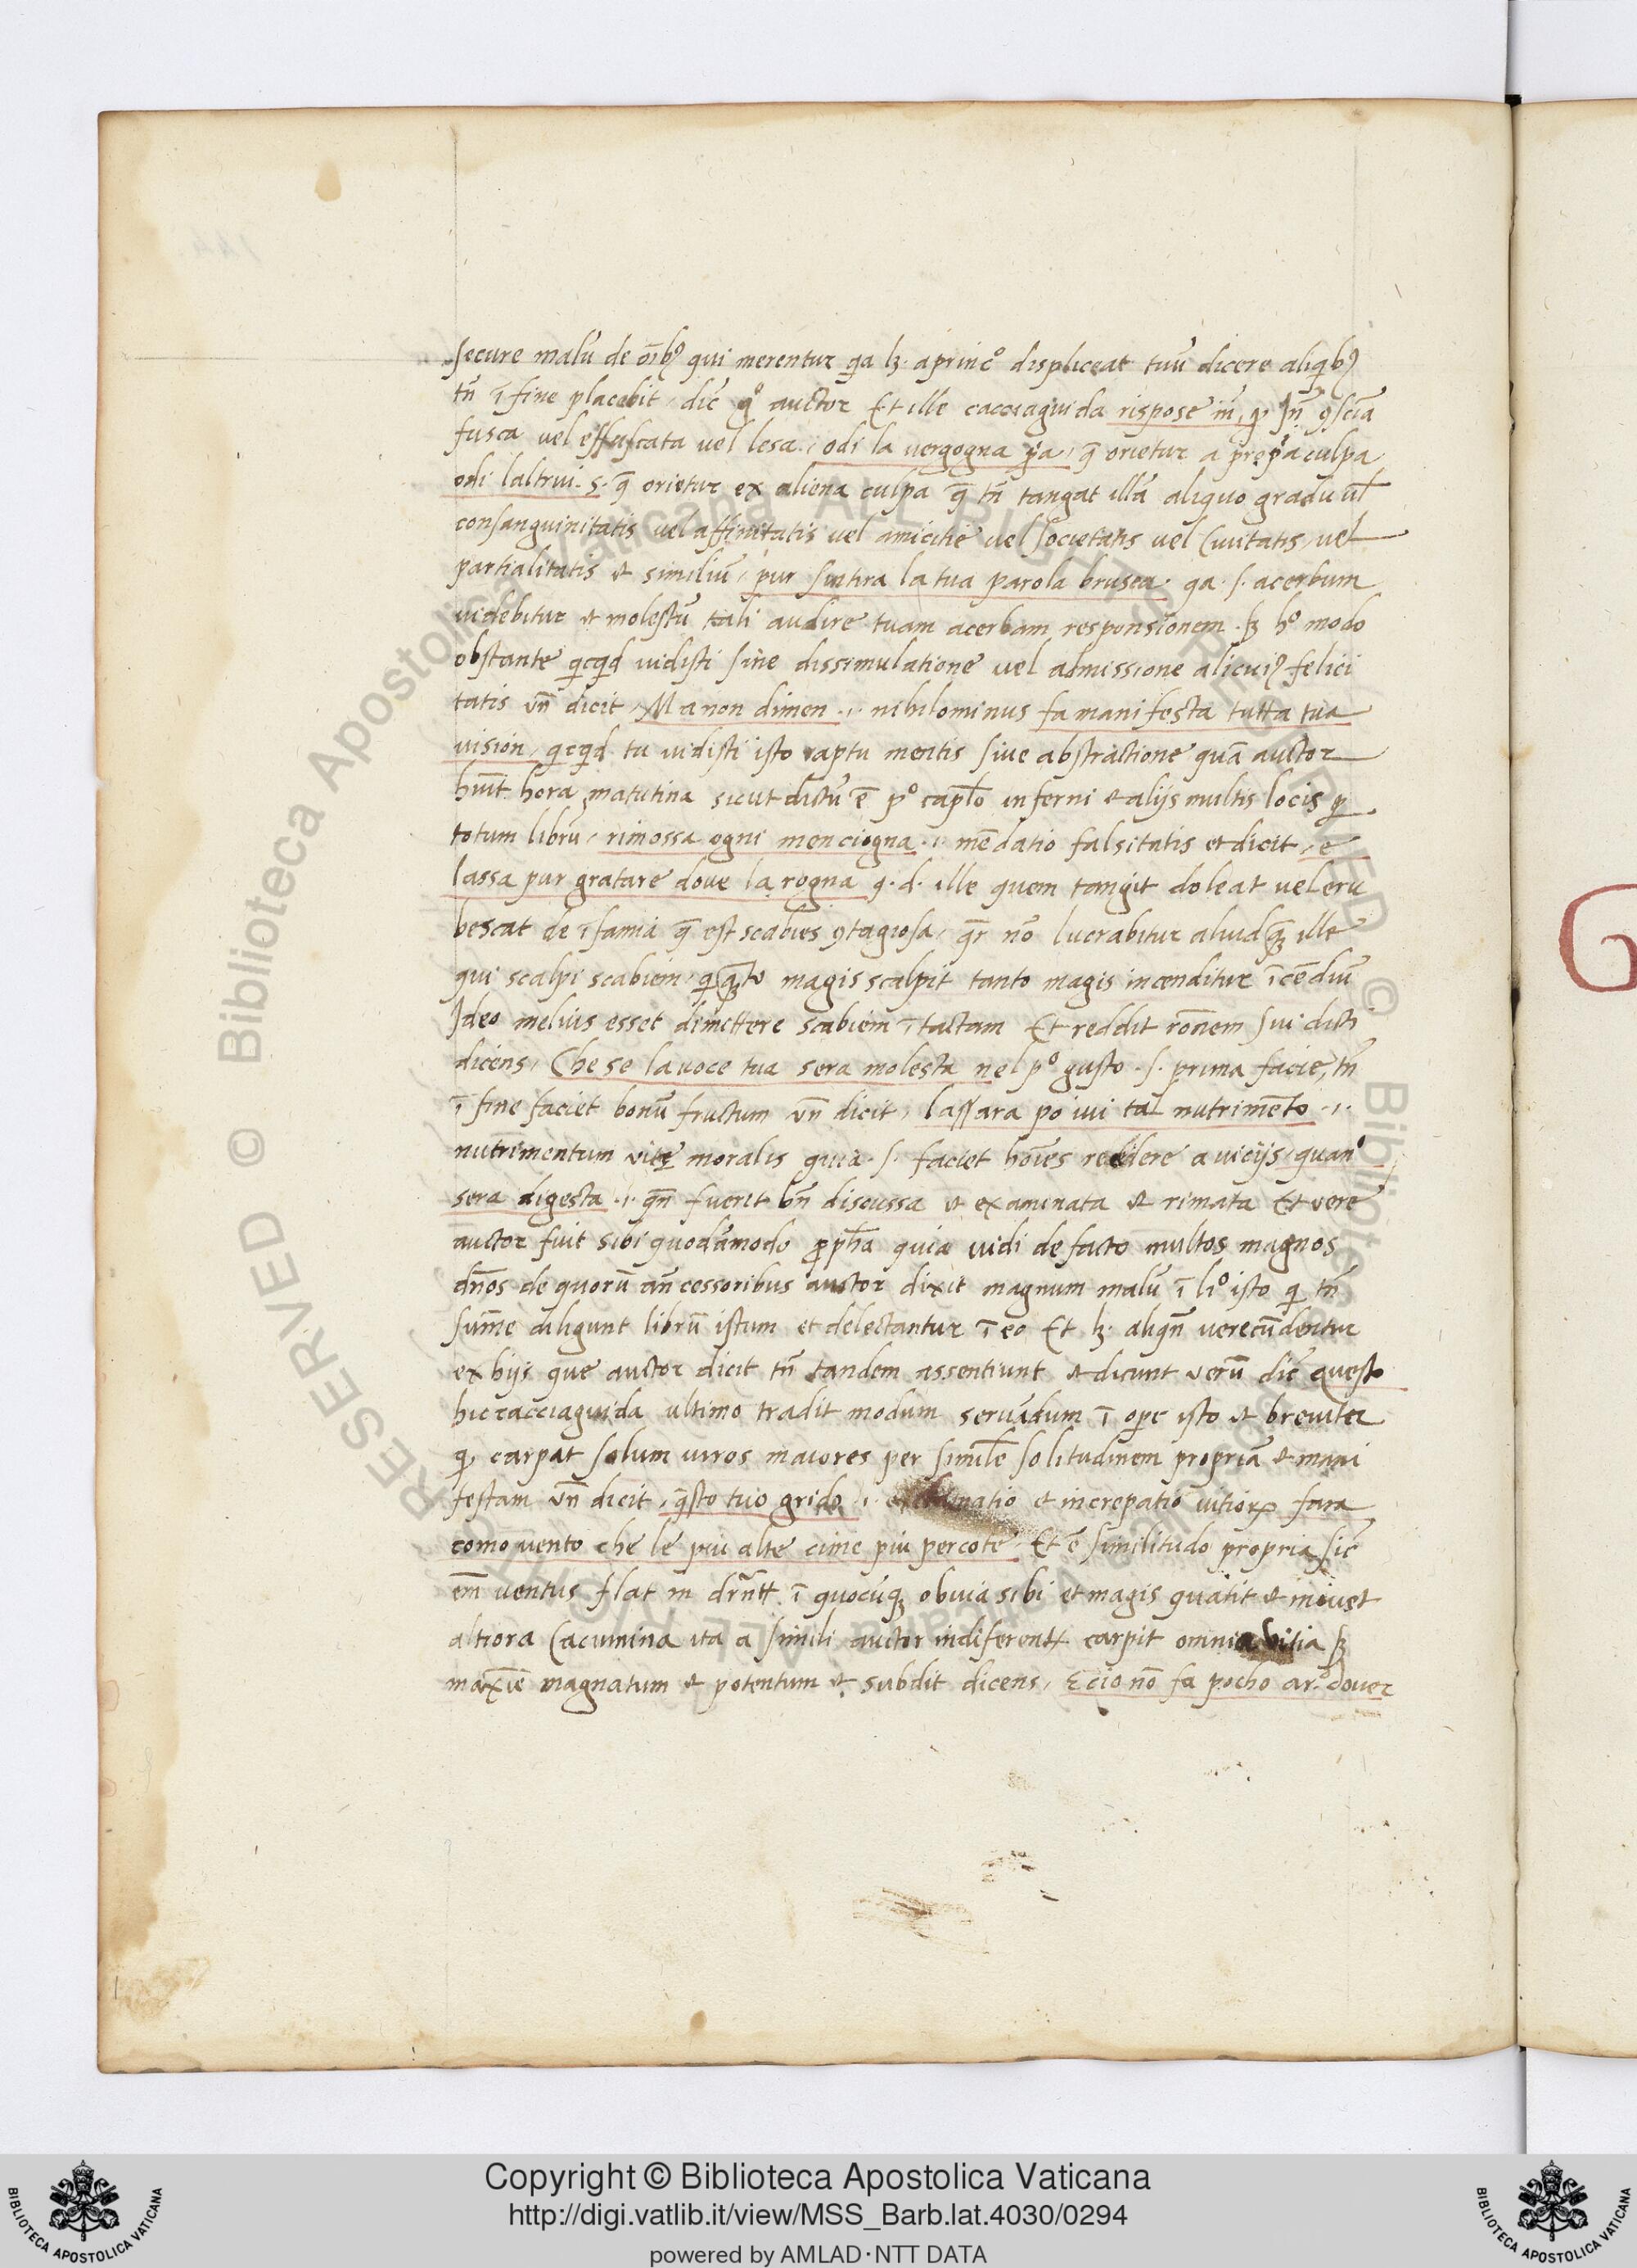 secure malū de oībꝰ qui merentur qa lꝫ. aprinc̊ displiceat tuū dicere aliqbꝰ
tn̄ ī fine placebit, dic̄ gͦ auctor Et ille cacciaguida rispose īn, q̨ In̄ ꝯsciā
fusca vel effuscata vel lesa, odi la vergogna ꝓa, q̄ orietur a pre pͦa culpa
odi laltrui. s. q̄ orietur ex aliena culpa q̄ tn̄ tangat illā aliquo gradu ul̄
consanguinitatis vel affinitatis vel amicitie vel societatis vel Civitatis, vel
partialitatis et similiū, pur sentira la tua parola brusca. qa. s. acerbum
videbitur et molestū tali audire tuam acerbam responsionem. sꝫ hͦ modo
obstante qcqd vidisti sine dissimulatione vel admissione alicuiꝰ felici
tatis vn̄ dicit, Ma non dimen .i. nihilominus fa manifesta tutta tua
vision, qcqd tu vidisti isto raptu mentis sive abstractione quā auctor
huīt hora matutina sicut dictū ē pͦ capl̄o inferni et alijs multis locis ꝑ
totum librū, rimossa ogni menciogna .i. mēdatio falsitatis et dicit, e
lassa pur gratare dove la rogna q. d. ille quem tangit doleat vel eru
bescat de īfamia q̄ est scabies ꝯtagiosa, qr̄ nō lucrabitur aliud qꝫ ille
qui scalpi scabiem, q qꝫto magis scalpit tanto magis incenditur īcēdiū
Ideo melius esset dimittere scabiem ītactam Et reddit rōnem sui dicti
dicens, Che se la voce tua sera molesta nel pͦ gusto .s. prima facie, tn̄
ī fine faciet bonū fructum vn̄ dicit, lassara poi vi tal nutrimēto .i.
nutrimentum vite moralis quia .s. faciet hoīes redere a vicijs, quan̊
sera digesta .i. qn̄ fuerit bn̄ discussa et examinata et rimata Et vere
auctor fuit sibi quodāmodo ꝓph̄a quia vidi de facto multos magnos
dn̄os de quorū an̄cessoribus auctor dixit magnum malū ī liͦ isto q tn̄
sum̄e diligunt librū istum et delectantur ī eo Et lꝫ. aliqn̄ verecūdentur
ex hijs que auctor dicit tn̄ tandem assentiunt et dicunt verū dic̄ questo
hic cacciaguida ultimo tradit modum servādum ī ope isto et breviter
q̨ carpat solum viros maiores per simil̄e solitudinem propriā et mani
festam vn̄ dicit, q̄sto tuo grido .i. exclamatio et increpatio vitioꝝ fara
como vento che le piu alte cime piu percote. Et ē similitudo propria sic̄
em̄ ventus flat in drn̄tt. ī quocūqꝫ obvia sibi et magis quatit et movet
altiora Cacumina ita a simili auctor indiferent carpit omnia vitia sꝫ
maxīe magnatum et potentum et subdit dicens, E cio nō fa pocho ar.ͦ dover
Copyright © Biblioteca Apostolica Vaticana
http://digi.vatlib.it/view/MSS_Barb.lat.4030/0294
powered by AMLAD·NTT DATA